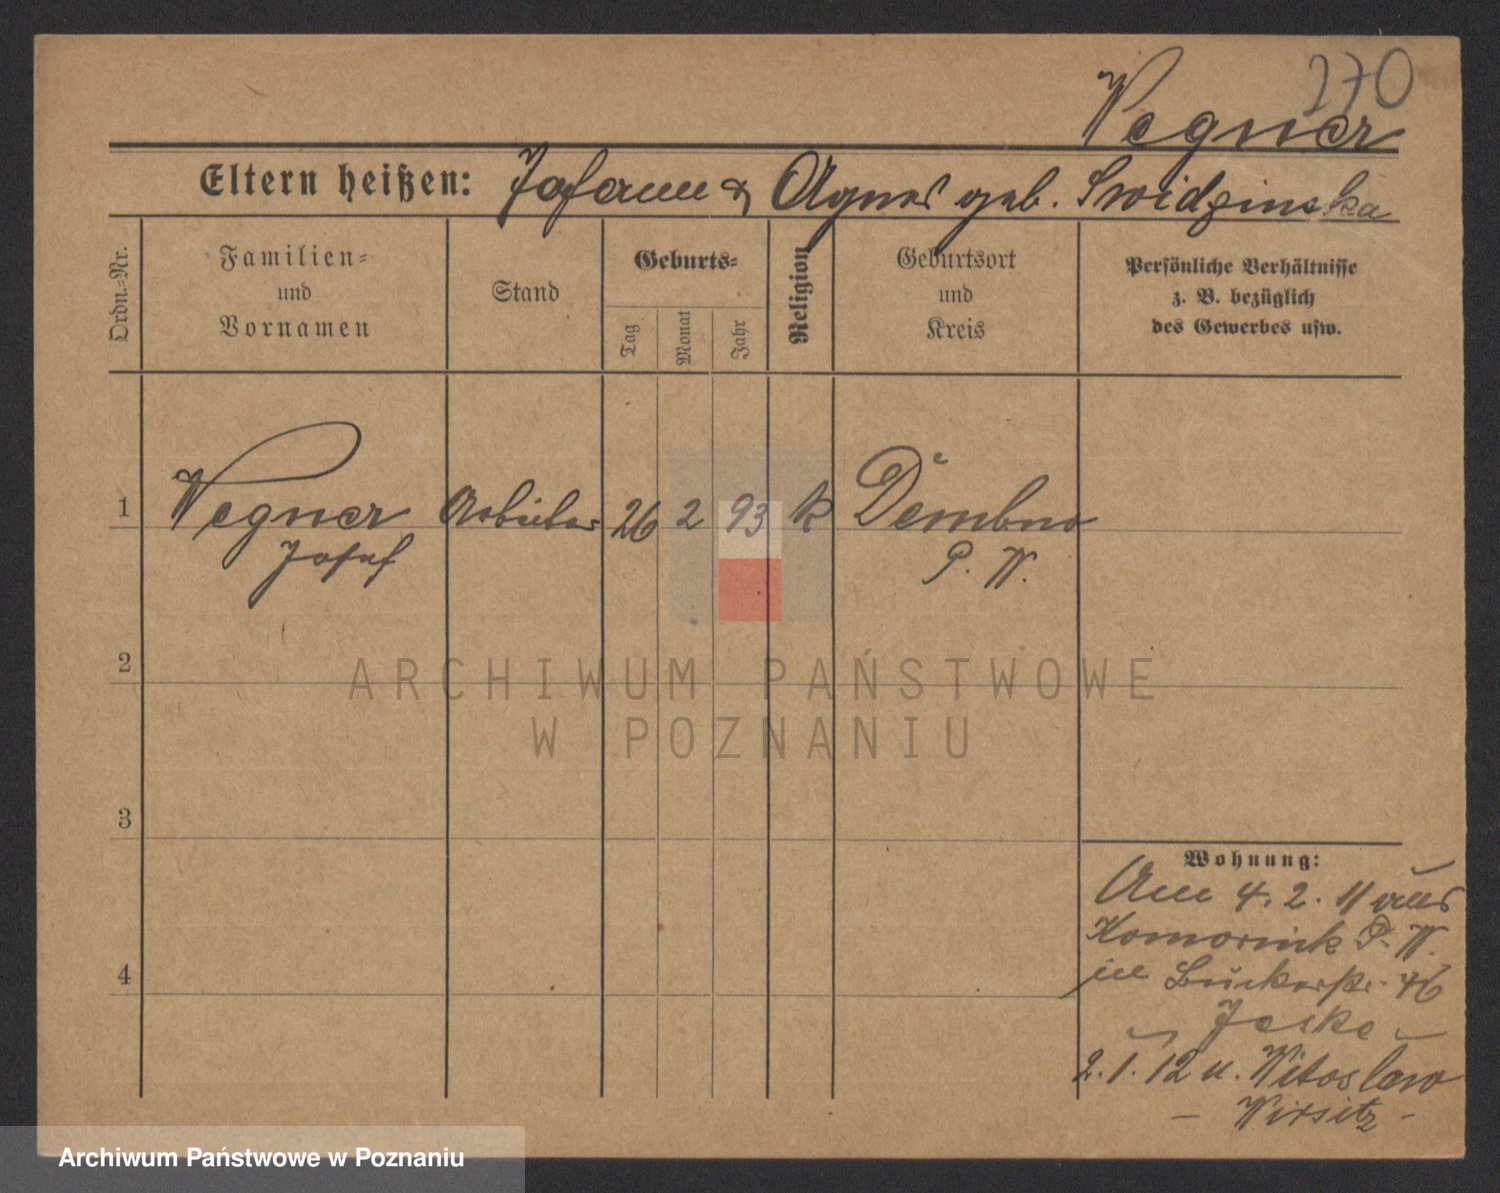 270
Wegner
Eltern heißen: Johann & Agnes geb. Swidzinska
Ordn.-Nr.
Familien- und Vornamen
Stand
Geburts-
Tag
Monat
Jahr
Religion
Geburtsort und Kreis
Persönliche Verhältnisse
z. B. bezüglich
des Gewerbes usw.
1 Wegner Arbeiter 26 2 93 k Dembno
Josef P. W.
2
ARCHIWUM PAŃSTWOWE
W POZNANIU
3
Wohnung:
Am 4. 2. 11 aus
Komornik P. W.
4
in 46
Jeske
2. 1. 12 n. Witoslaw
- Wirsitz -
Archiwum Państwowe w Poznaniu